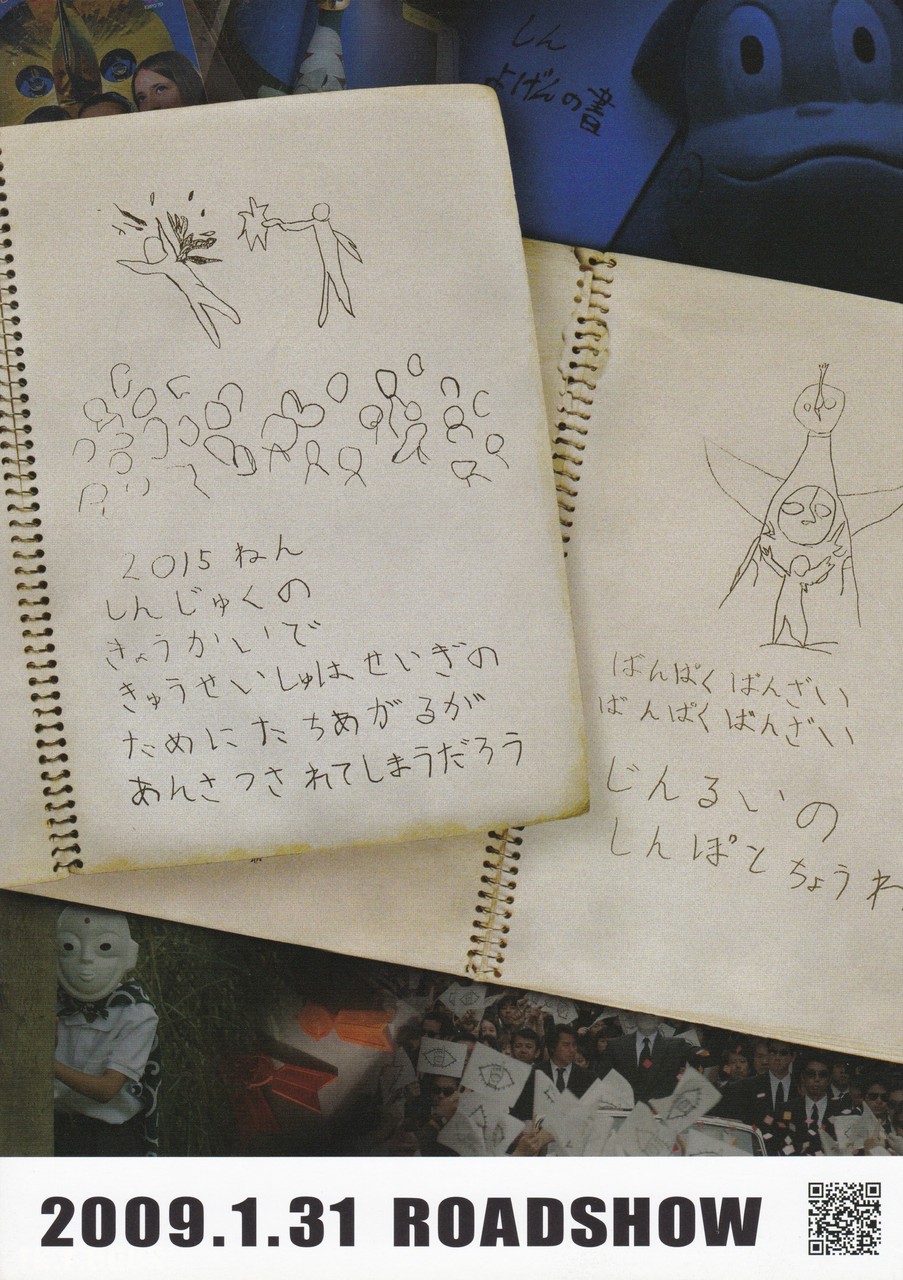 しん
よげんの書
2015ねん
しんじゅくの
きょうかいで
きゅうせいしゅはせいぎの
ためにたちあがるが
あんさつされてしまうだろう
ばんぱくばんざい
ばんぱくばんざい
じんるいの
しんぽとちょうわ
2009.1.31 ROADSHOW